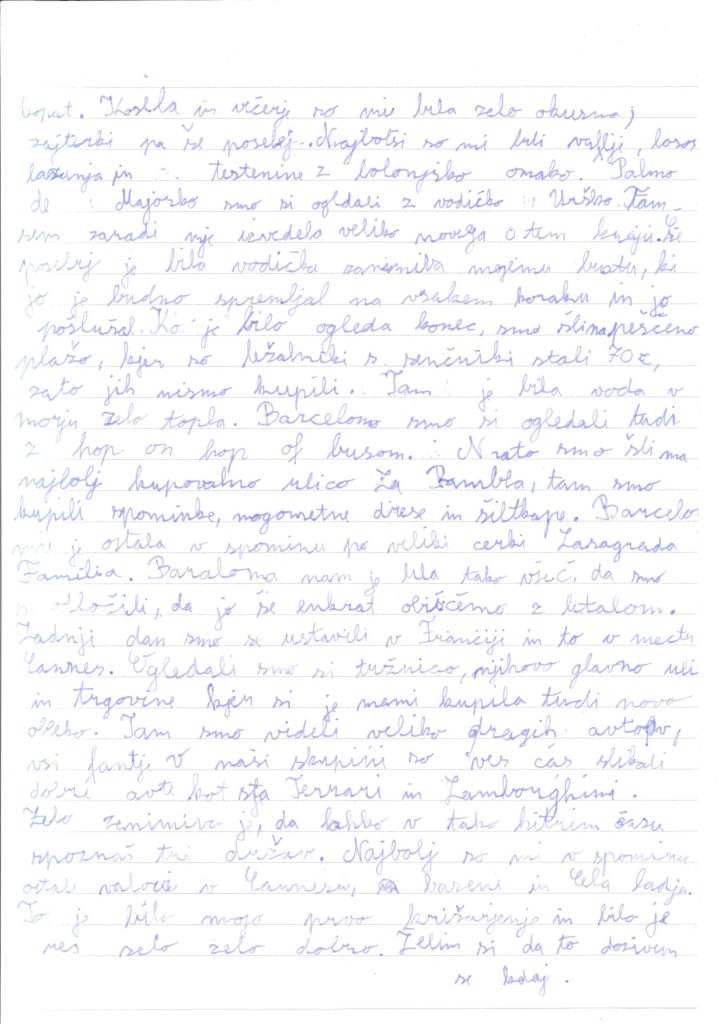 kopat. Kosila in večerje so mi bila zelo okusna;
zajterki pa še posebej. Najbolsi so mi bili vaflji, losos
lazanja in testenine z bolonjsko omako. Palmo
de Majorko smo si ogldali z vodičko Urško. Tam
sem zaradi nje izvedela veliko novega o tem kraju. Še
posebej je bila vodička zanimiva mojemu bratu, ki
jo je budno spremljal na vsakem koraku in jo
poslušal. Ko je bilo ogleda konec, smo šli na peščeno
plažo, kjer so ležalniki s senčniki stali 70€,
zato jih nismo kupili. Tam je bila voda v
morju zelo topla. Barcelono smo si ogledali tudi
z hop on hop of busom. Nato smo šli na
najbolj kupovalno ulico La Rambla, tam smo
kupili spominke, nogometne drese in šiltkape. Barcelo
mi je ostala v spominu po veliki cerki Lasagrada
Familia. Baraloma nam je bla tako všeč, da smo
odločili, da jo še enkrat obiščemo z letalom.
Zadnji dan smo se ustavili v Franciji in to v mestu
Cannes. Ogledali smo si tržnico, njihovo glavno uli
in trgovine kjer si je mami kupila tudi novo
obleko. Tam smo videli veliko dragih avtov,
vsi fantje v naši skupini so ves čas slikali
dobre avte kot sta Ferrari in Lamborghini.
Zelo zanimiva je, da lahko v tako hitrem času
spoznaš tri držav. Najbolj so mi v spominu
ostal valovi v Cannesu, bazeni in cela ladja.
To je bilo mojo prvo križarjenje in bilo je
res zelo zelo dobro. Želim si da to dozivem
se kdaj.